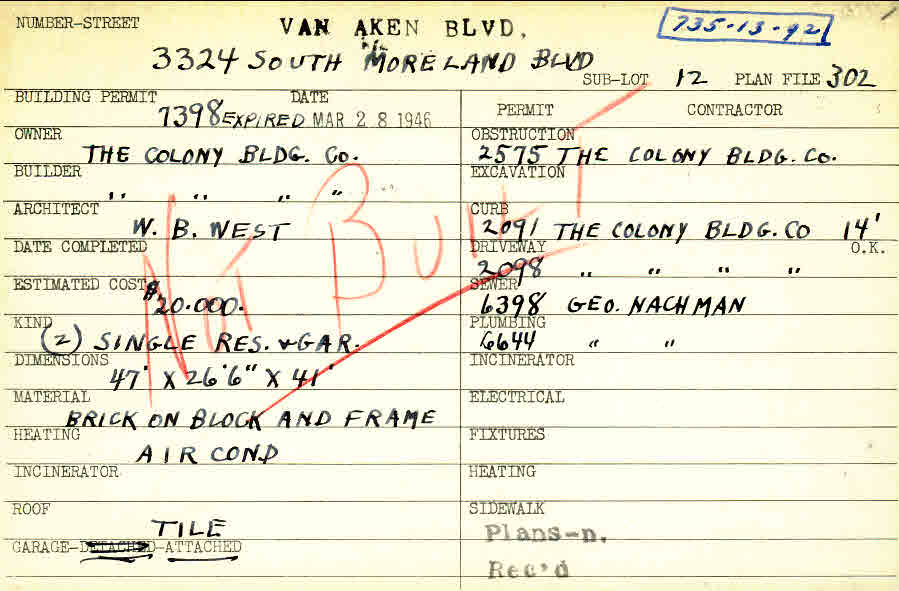 NUMBER-STREET VAN AKEN BLVD. 735-13-92
3324 SOUTH MORELAND BLVD
SUB-LOT 12 PLAN FILE 302
BUILDING PERMIT DATE
7398 EXPIRED MAR 28 1946
OWNER
THE COLONY BLDG. CO.
BUILDER
" " " "
ARCHITECT
W. B. WEST
DATE COMPLETED
ESTIMATED COST
$20.000.
KIND
(2) SINGLE RES. & GAR.
DIMENSIONS
47' X 26'6" X 41'
MATERIAL
BRICK ON BLOCK AND FRAME
HEATING
AIR COND
INCINERATOR
ROOF
TILE
GARAGE-DETACHED-ATTACHED
NOT BUILT
PERMIT CONTRACTOR
OBSTRUCTION
2575 THE COLONY BLDG. CO.
EXCAVATION
CURB
2091 THE COLONY BLDG. CO 14'
DRIVEWAY O.K.
2098 " " " "
SEWER
6398 GEO. NACHMAN
PLUMBING
6644 " "
INCINERATOR
ELECTRICAL
FIXTURES
HEATING
SIDEWALK
Plans-n.
Rec'd